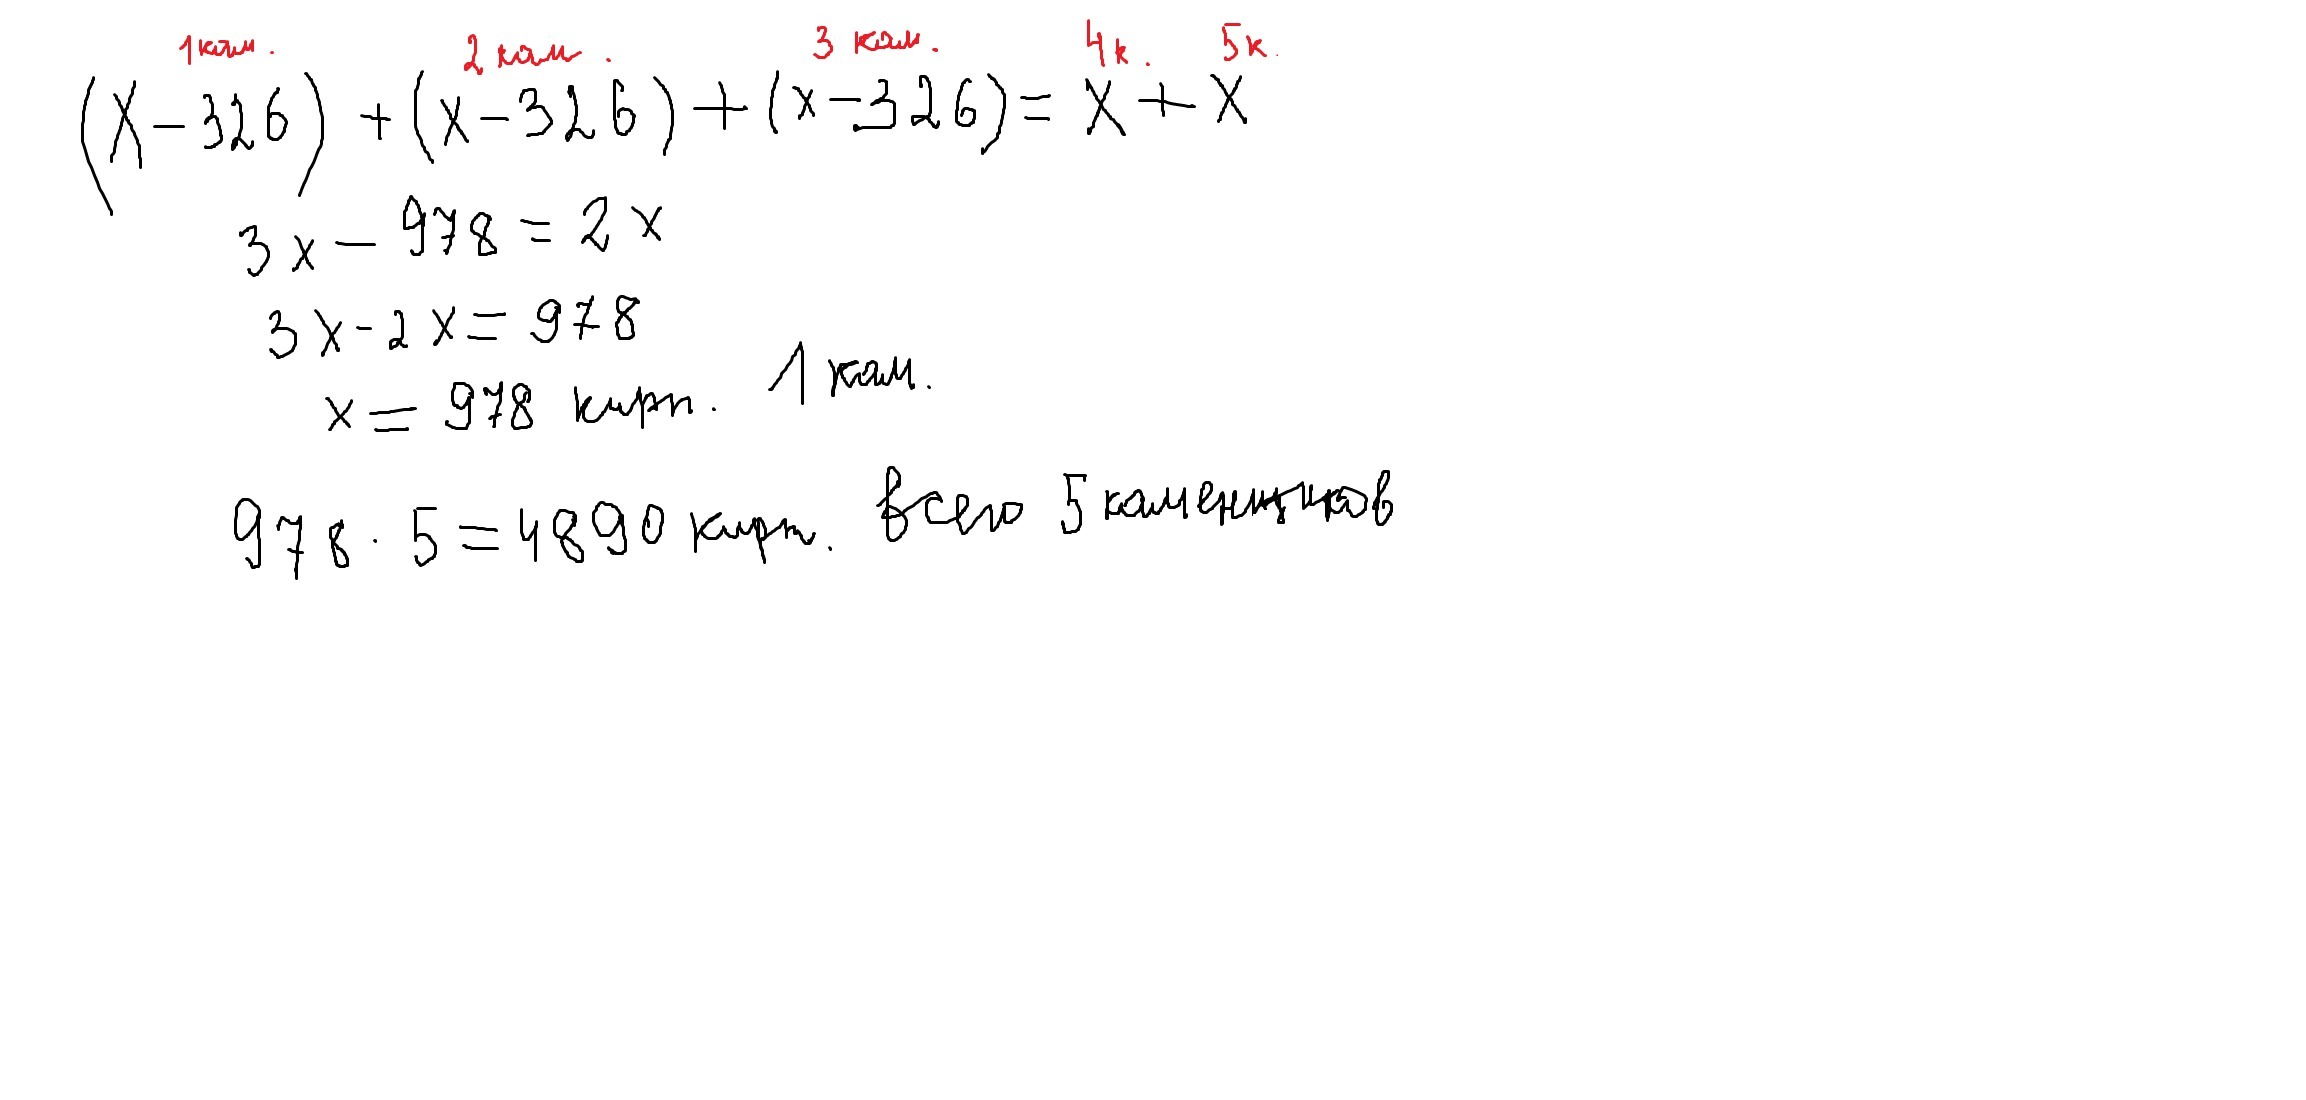 1 кам. 2 кам. 3 кам. 4 к. 5 к.
(x - 326) + (x - 326) + (x - 326) = x + x
3x - 978 = 2x
3x - 2x = 978
x = 978 кирп. 1 кам.
978 · 5 = 4890 кирп. всего 5 каменщиков